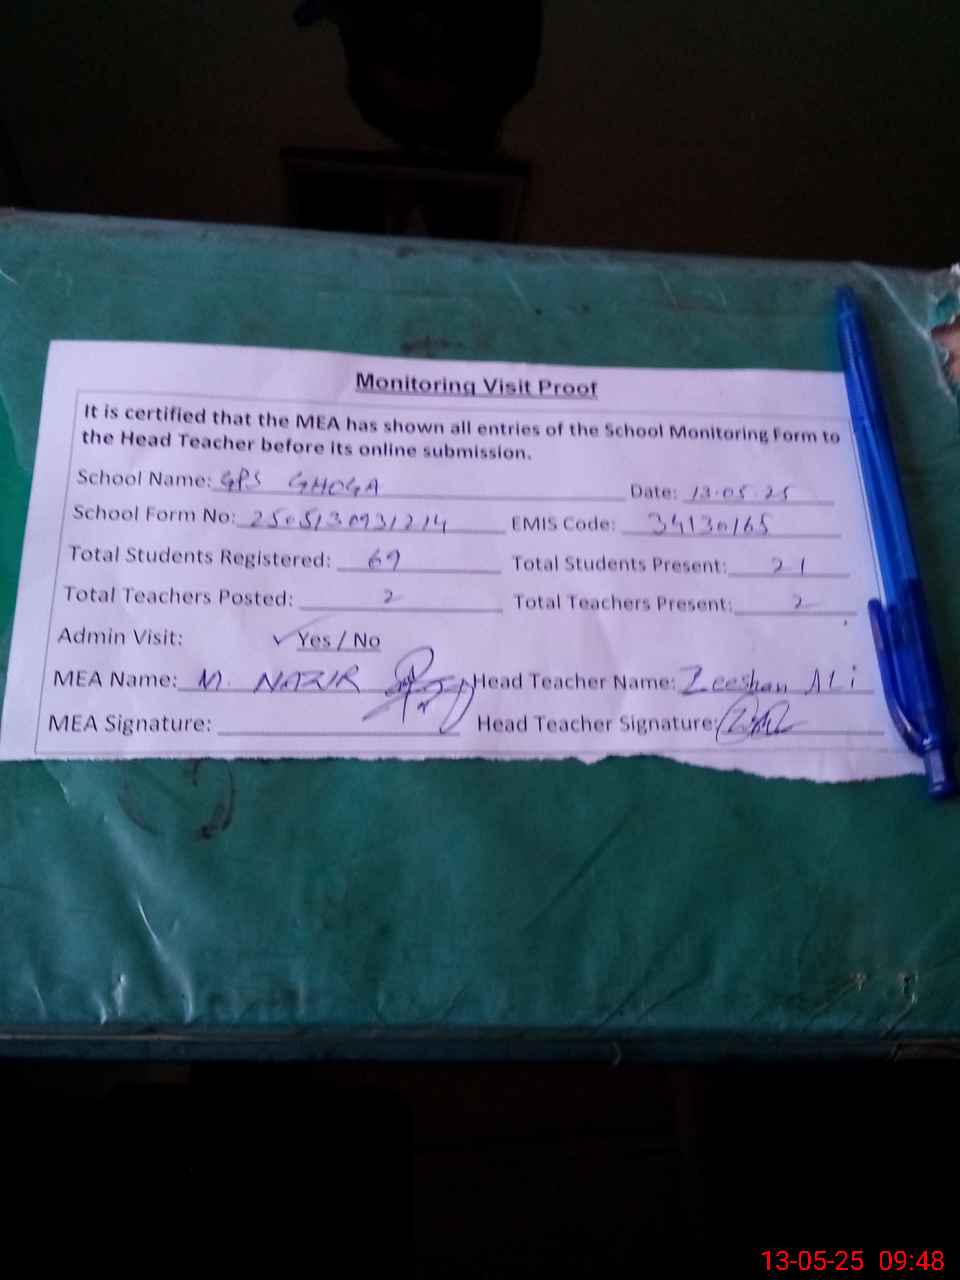 Monitoring Visit Proof
It is certified that the MEA has shown all entries of the School Monitoring Form to
the Head Teacher before its online submission.
School Name: GPS GHOGA Date: 13.05.25
School Form No: EMIS Code: 34130165
Total Students Registered: 69 Total Students Present: 21
Total Teachers Posted: 2 Total Teachers Present: 2
Admin Visit: ✓ Yes / No
MEA Name: M. NAZIR Head Teacher Name: Zeeshan ALi
MEA Signature: Head Teacher Signature:
13-05-25 09:48